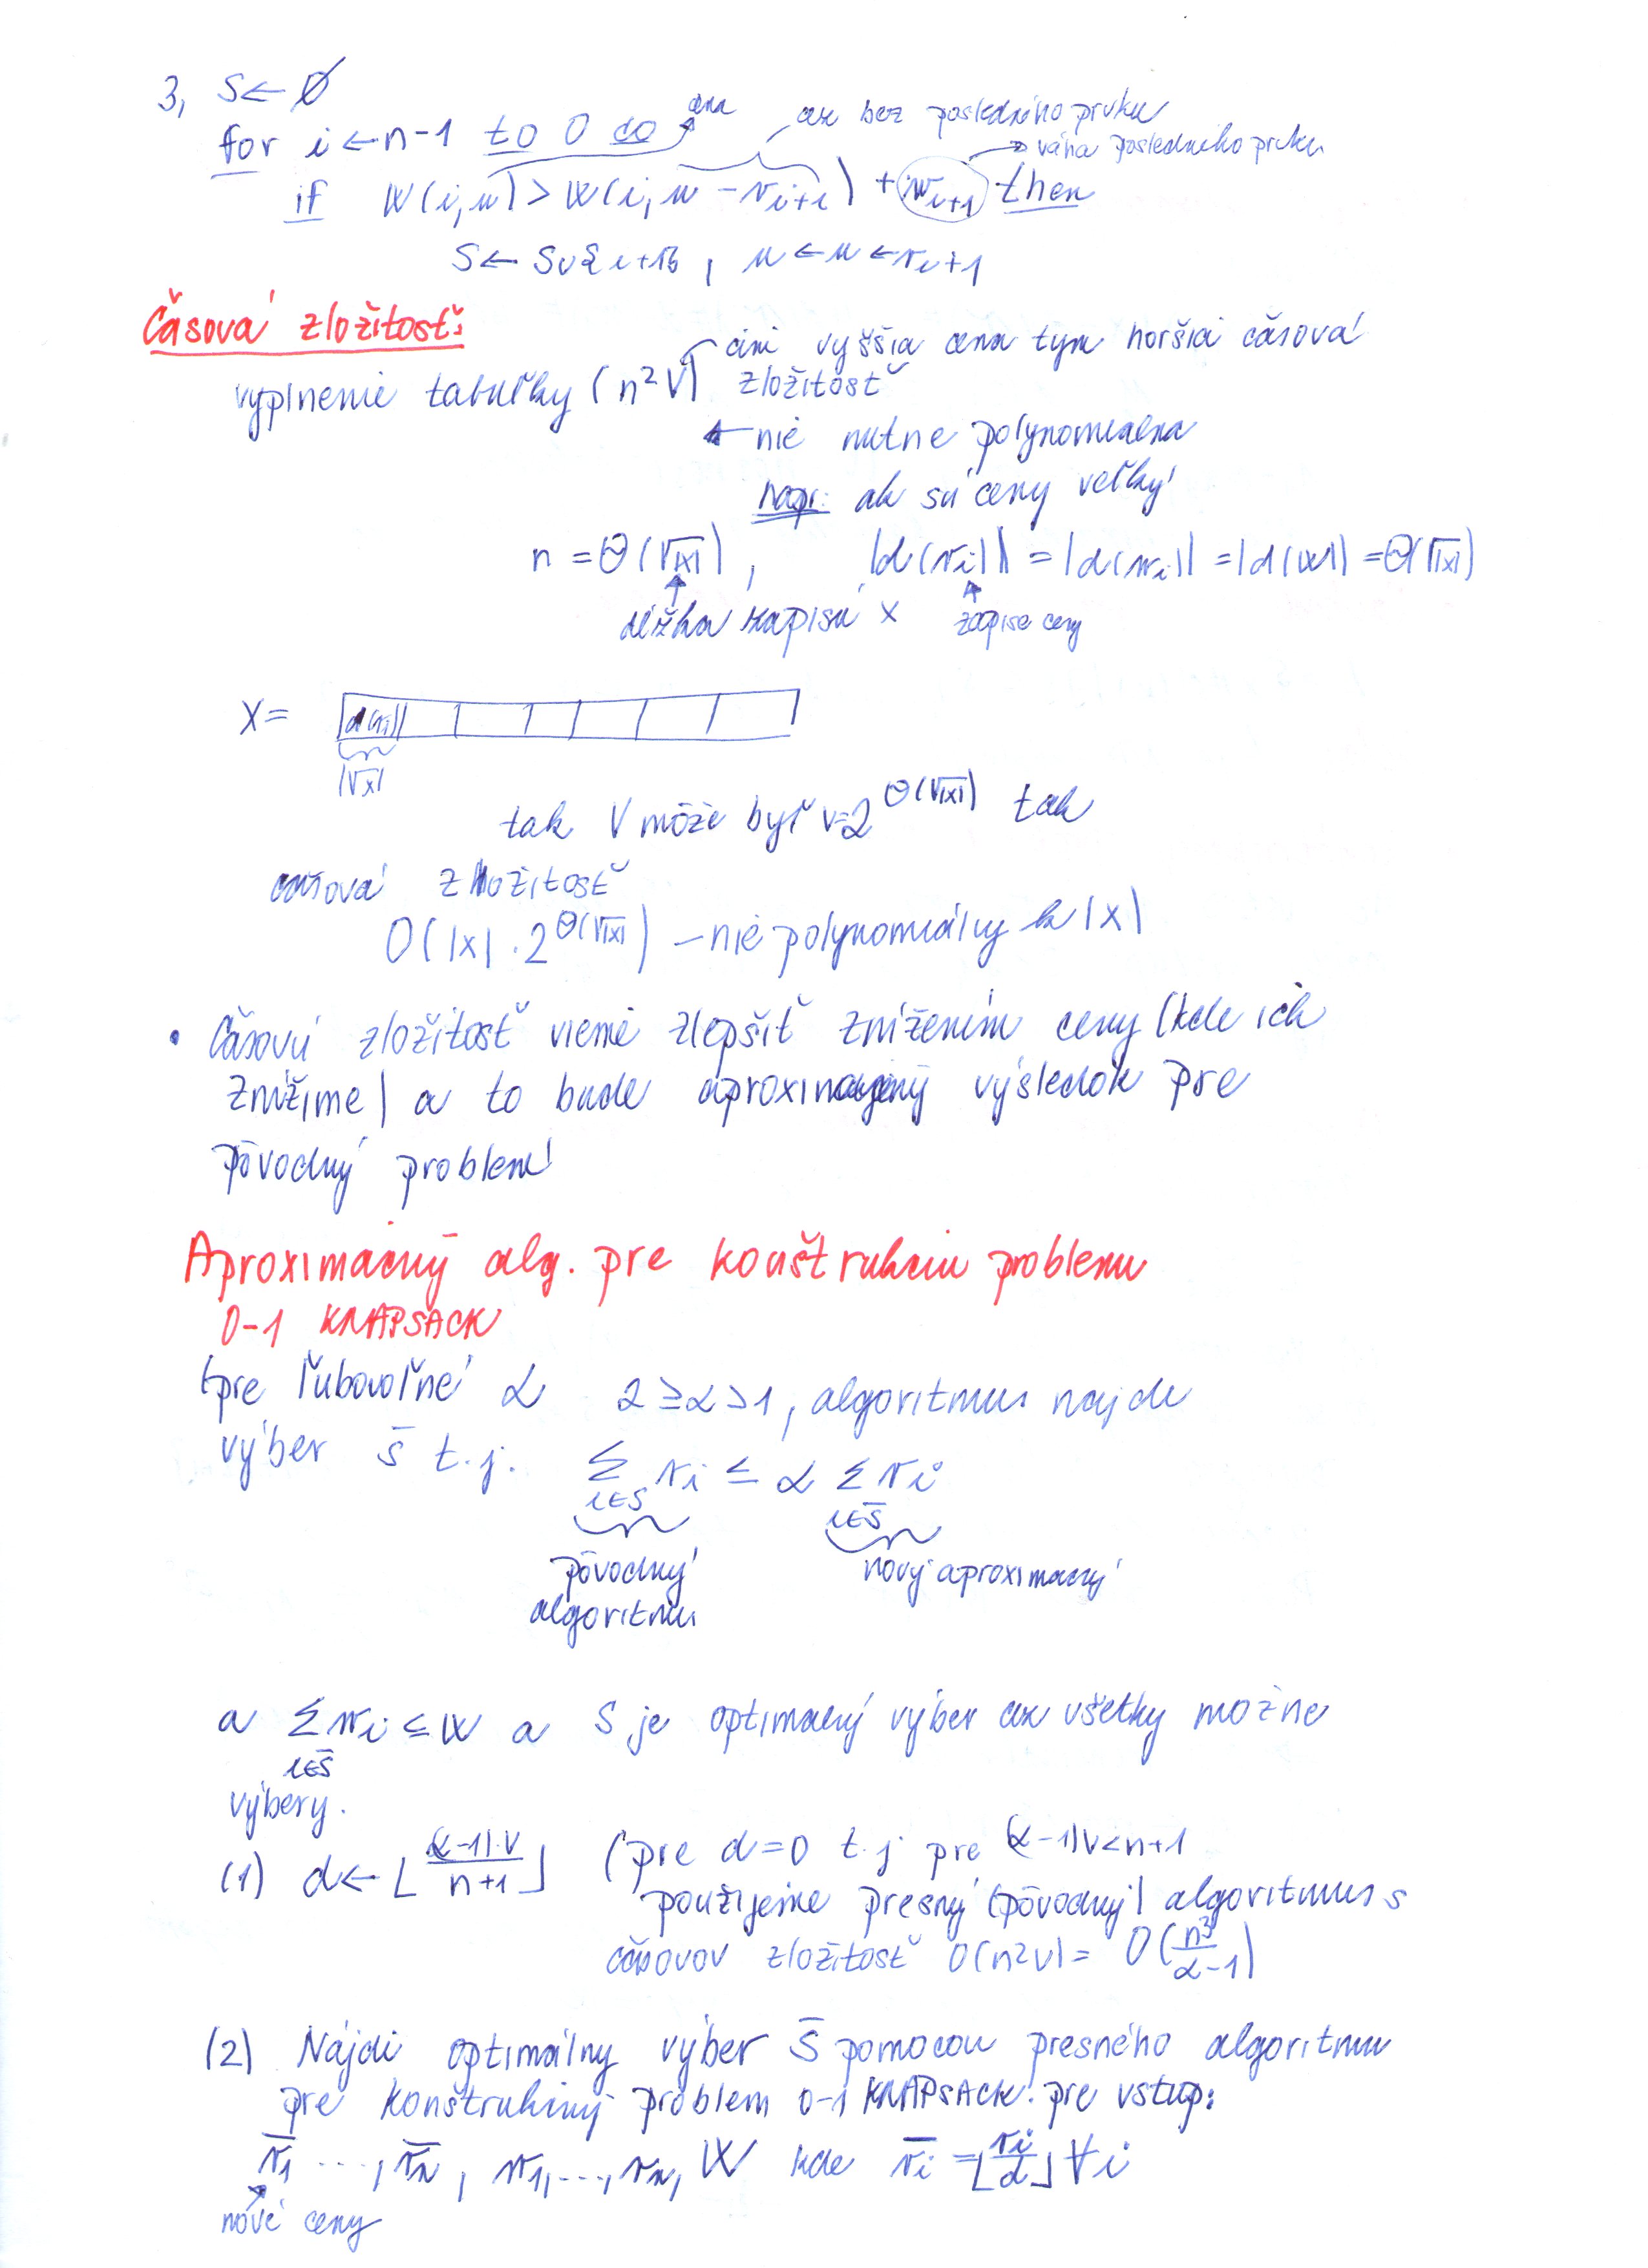 3, S ← ∅
cena
cez bez posledného prvku
for i ← n-1 to 0 do
váha posledneho prvku
if W(i,u) > W(i,u - v_{i+1}) + w_{i+1} then
S ← S ∪ {i+1}, u ← u ← v_{i+1}
Časová zložitosť:
čim vyššia cena tym horšia časová
vyplnenie tabuľky (n²V) zložitosť
← nie nutne polynomialna
napr: ak sú ceny veľký
n = Θ(√|x|), |d(v_i)| = |d(w_i)| = |d(W)| = Θ(√|x|)
dĺžka zápisu x zápise ceny
X = |d(v_i)|
|√x|
tak V môže byť v=2^{Θ(√|x|)} tak
časová zložitosť
O(|x| . 2^{Θ(√|x|)}) – nie polynomiálny k |x|
• Časovú zložitosť vieme zlepšiť znížením ceny (kde ich
znížime) a to bude aproximačný výsledok pre
pôvodný problem
Aproximačný alg. pre konštrukciu problemu
0-1 KNAPSACK
(pre ľubovoľné α 2 ≥ α > 1, algoritmus najde
výber s̄ t.j. Σ_{i∈S} v_i ≤ α Σ_{i∈S̄} v_i
pôvodný nový aproximačný
algoritmu
a Σ_{i∈S̄} w_i ≤ W a S je optimalný výber cez všetky možne
výbery.
(1) d ← ⌊(α-1)·V / n+1⌋ (pre d=0 t.j pre (α-1)V < n+1
použijeme presný (pôvodný) algoritmus s
časovov zložitosť O(n²V) = O(n³/α-1)
(2) Nájdi optimálny výber S̄ pomocou presného algoritmu
pre konštrukčný problem 0-1 KNAPSACK. pre vstup:
v̄_1 ..., v̄_n, w_1, ..., w_n, W kde v̄_i = ⌊v_i/d⌋ ∀i
nové ceny